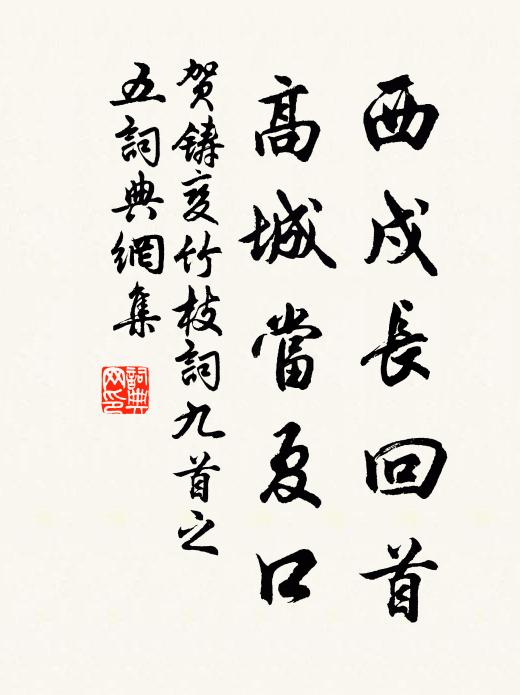 西戍長回首
高城當夏口
賀鑄變竹枝詞九首之
五詞典網集
詞典
网印